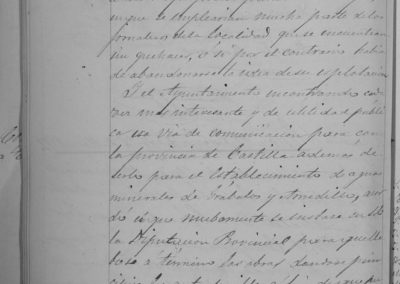 en que se emplearian mucha parte de los
jornaleros de la localidad que se encuentran
sin quehacer, ó si por el contrario habia
de abandonarse la idea de su esplotacion
Y el Ayuntamiento encontrando cada
vez mas interesante y de utilidad públi
ca esa via de comunicacion para con
la provincia de Castilla ademas de
serlo para el establecimiento de aguas
minerales de Grábalos y Arnedillo, acor
dó que nuebamente se instara
la Diputacion Provincial para que lle
base a término las obras dando